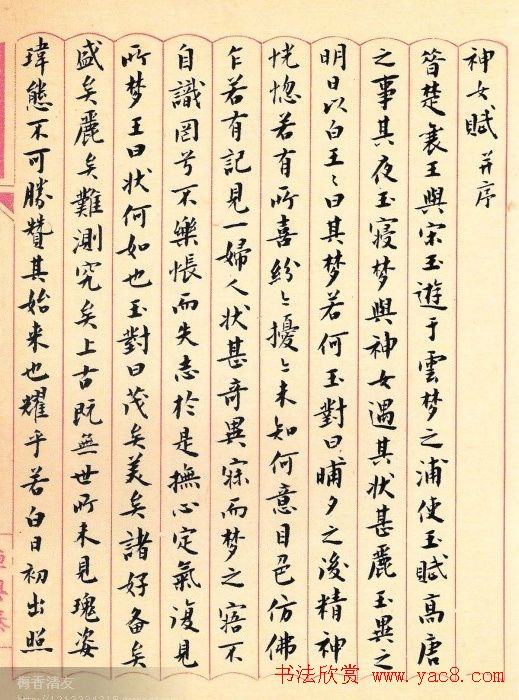 神女賦 并序
昔楚襄王與宋玉遊于雲梦之浦使玉賦高唐
之事其夜玉寝梦與神女遇其状甚麗玉異之
明日以白王〻曰其梦若何玉對曰晡夕之後精神
恍惚若有所喜紛〻擾〻未知何意目色仿佛
乍若有記見一婦人状甚奇異寐而梦之寤不
自識罔兮不樂悵而失志於是撫心定氣復見
所梦王曰状何如也玉對曰茂矣美矣諸好备矣
盛矣麗矣難測究矣上古既無世所未見瑰姿
瑋態不可勝贊其始来也耀乎若白日初出照
梅香清友
书法欣赏
www.yac8.com